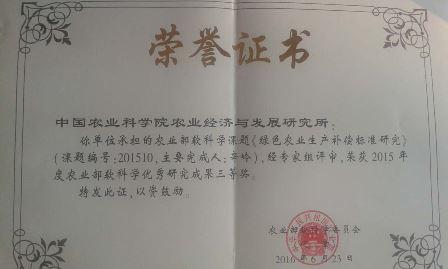 荣誉证书
中国农业科学院农业经济与发展研究所：
你单位承担的农业部软科学课题《绿色农业生产补偿标准研究》
（课题编号：201510，主要完成人：辛岭），经专家组评审，荣获2015年
度农业部软科学优秀研究成果三等奖。
特发此证，以资鼓励。
农业部软科学委员会
2016年6月23日